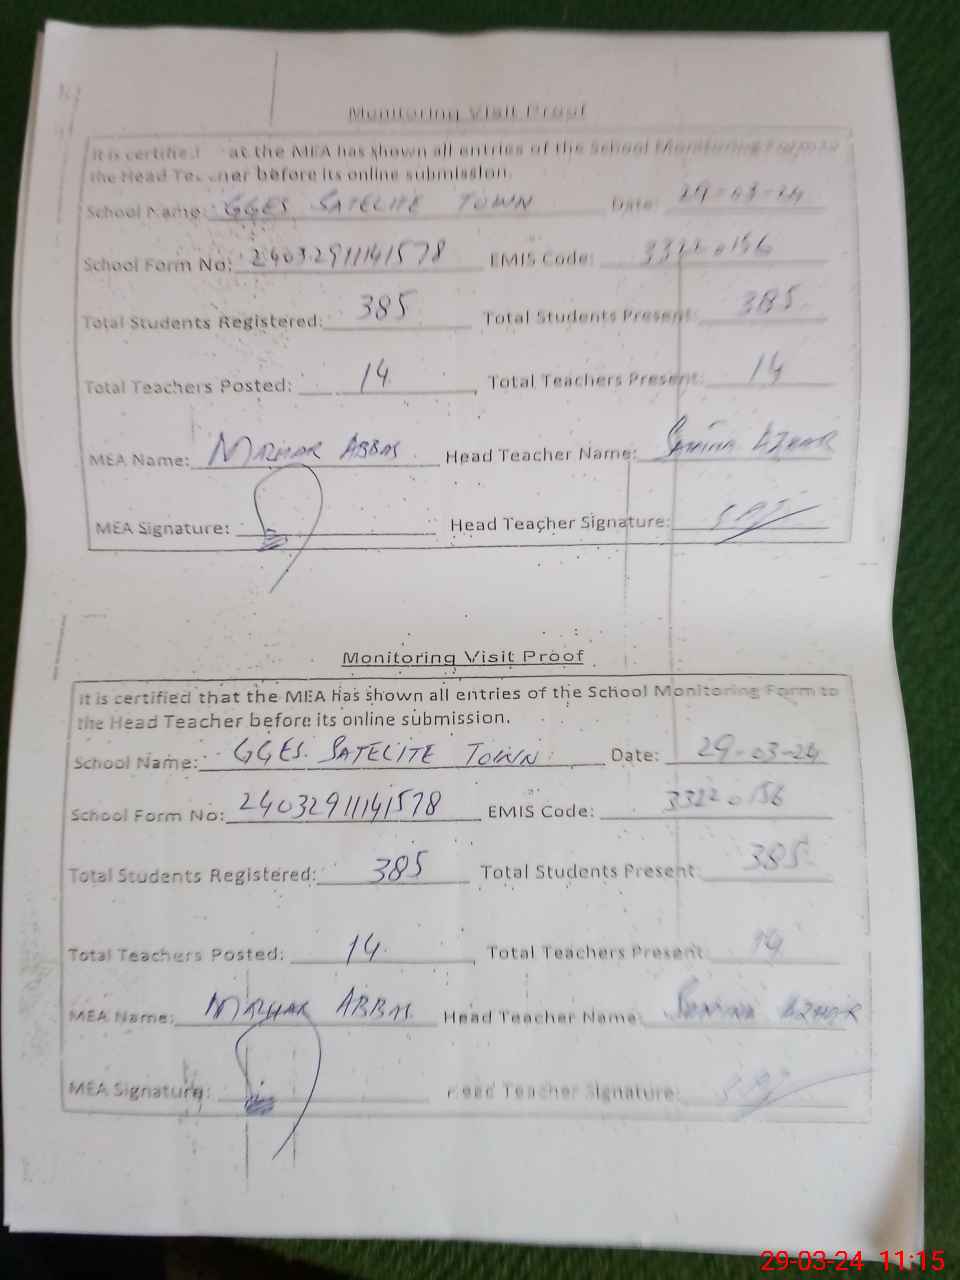 Monitoring Visit Proof
It is certified at the MEA has shown all entries of the School Monitoring Form to
the Head Teacher before its online submission.
School Name: GGES SATELITE TOWN Date: 29-03-24
School Form No: 24032911141578 EMIS Code: 33220156
Total Students Registered: 385 Total Students Present: 385
Total Teachers Posted: 14 Total Teachers Present: 14
MEA Name: MAZHAR ABBAS Head Teacher Name: SAMINA AZHAR
MEA Signature: Head Teacher Signature:
Monitoring Visit Proof
It is certified that the MEA has shown all entries of the School Monitoring Form to
the Head Teacher before its online submission.
School Name: GGES. SATELITE TOWN Date: 29-03-24
School Form No: 24032911141578 EMIS Code: 33220156
Total Students Registered: 385 Total Students Present: 385
Total Teachers Posted: 14 Total Teachers Present: 14
MEA Name: MAZHAR ABBAS Head Teacher Name: SAMINA AZHAR
MEA Signature: Head Teacher Signature:
29-03-24 11:15